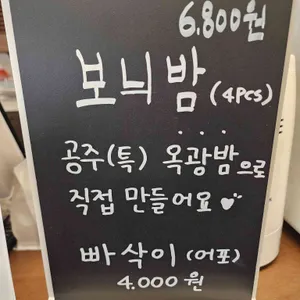 6.800원
보늬밤 (4pcs)
공주(특) 옥광밤으로
직접 만들어요
빠삭이 (어포)
4.000 원